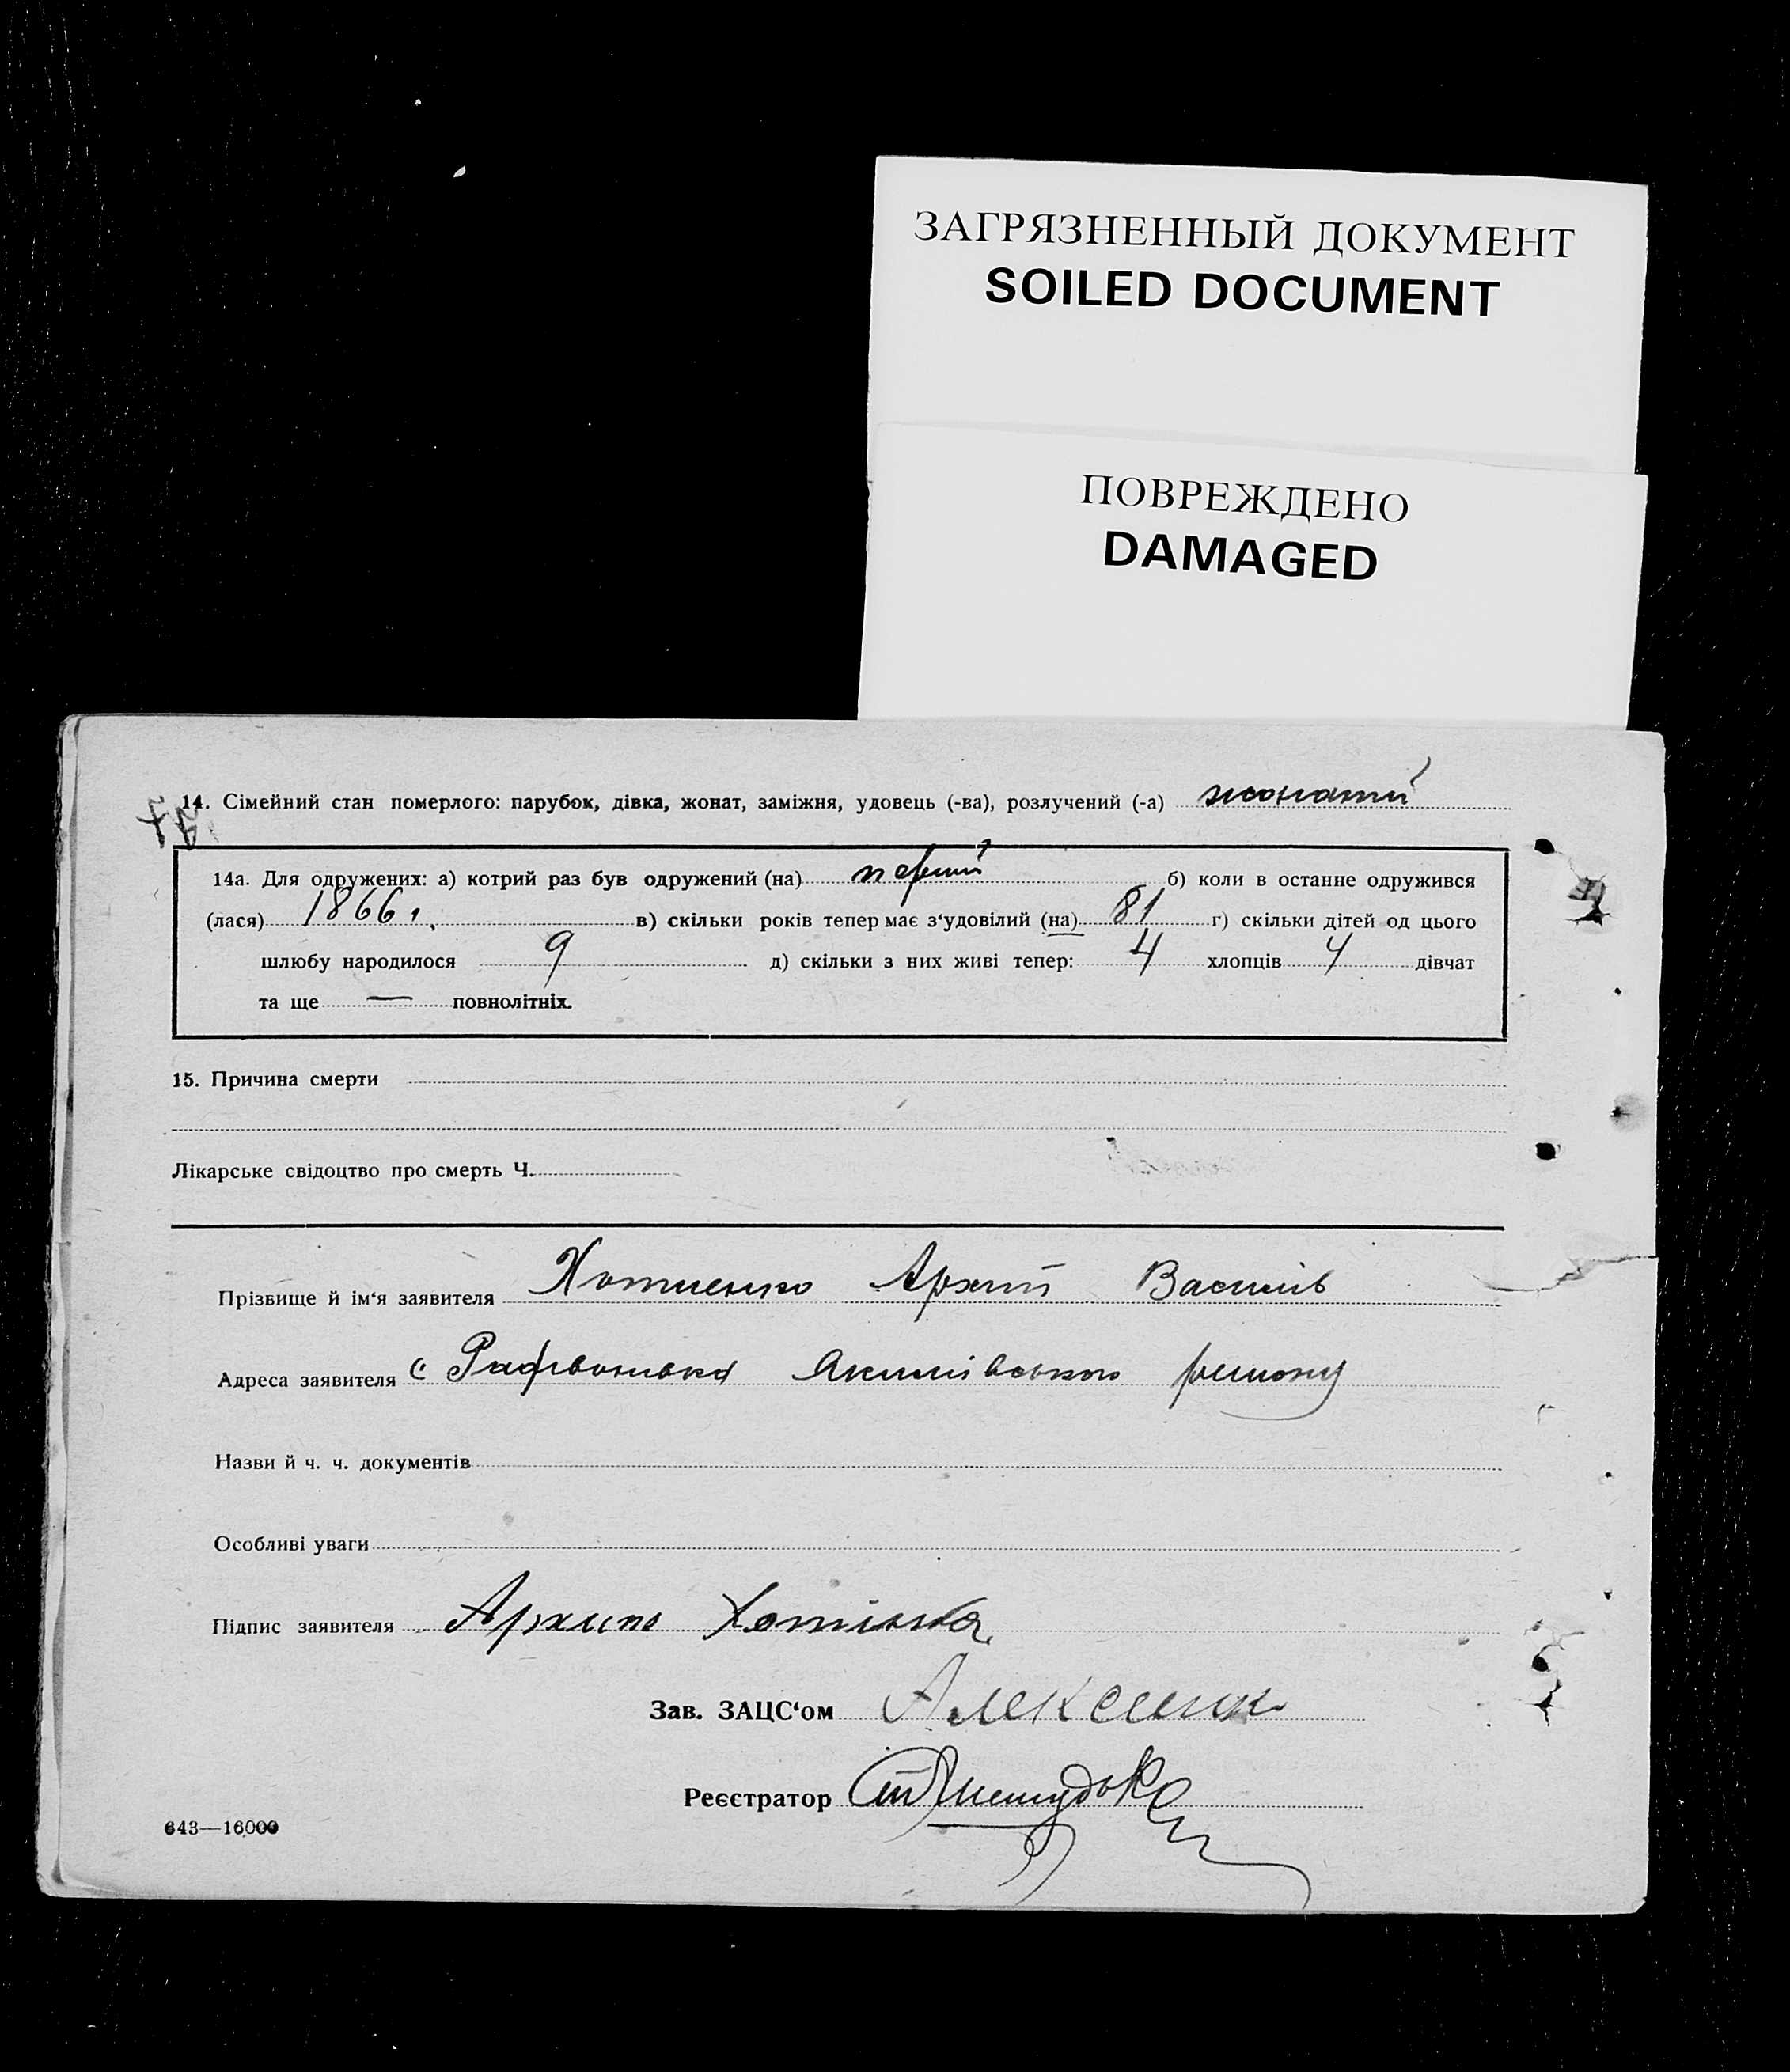 ЗАГРЯЗНЕННЫЙ ДОКУМЕНТ
SOILED DOCUMENT
ПОВРЕЖДЕНО
DAMAGED
14. Сімейний стан померлого: парубок, дівка, жонат, заміжня, удовець (-ва), розлучений (-а) жонатий
14а. Для одружених: а) котрий раз був одружений (на) перший б) коли в останне одружився
(лася) 1866, в) скільки років тепер має з‘удовілий (на) 81 г) скільки дітей од цього
шлюбу народилося 9 д) скільки з них живі тепер: 4 хлопців 4 дівчат
та ще — повнолітніх.
15. Причина смерти
Лікарське свідоцтво про смерть Ч.
Прізвище й ім‘я заявителя Хотиенко Архип Василів
Адреса заявителя с Якимівського району
Назви й ч. ч. документів
Особливі уваги
Підпис заявителя Архип
Зав. ЗАЦС‘ом
Реєстратор
643—16000